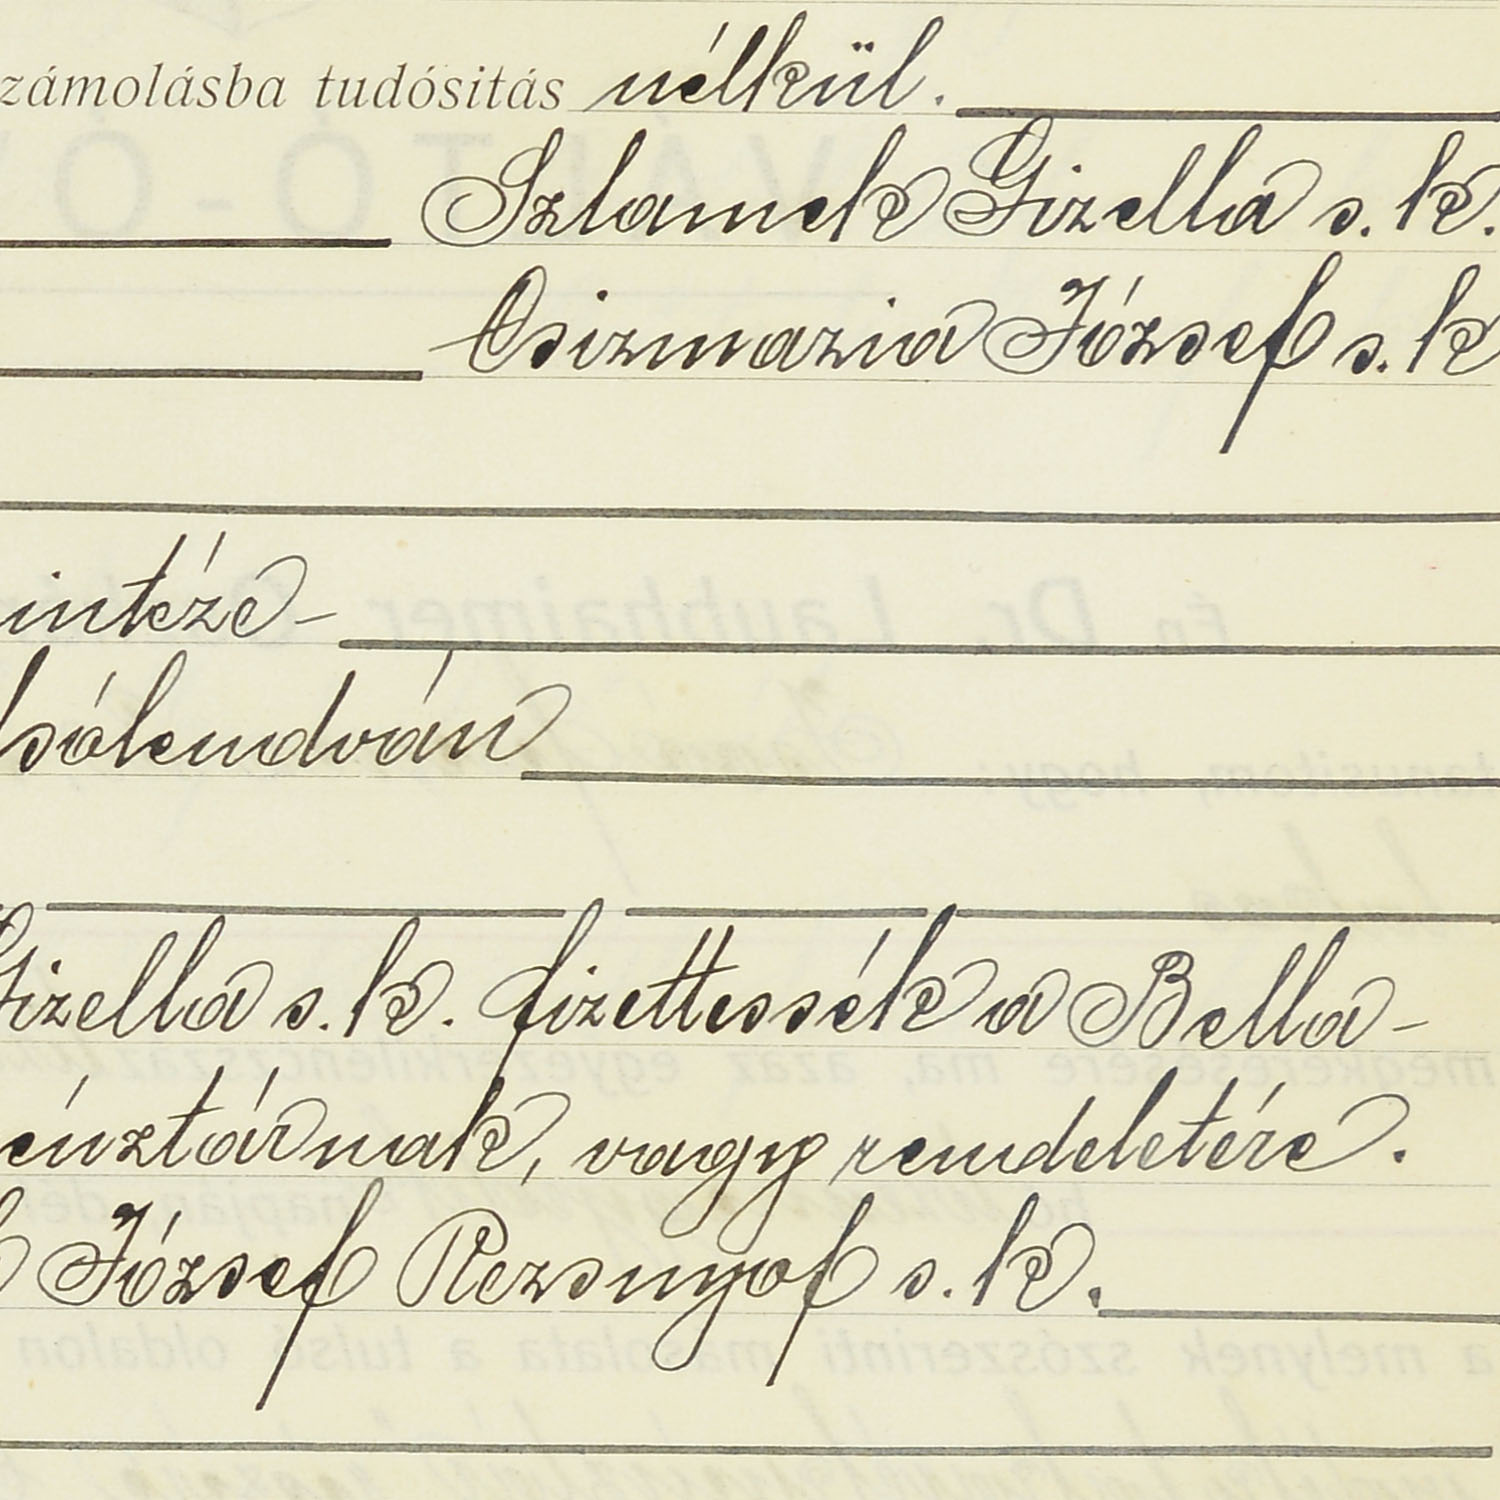 zámolásba tudósitás nélkül.
Szlamek Gizella s. k.
Csizmazia József s. k
intéze-
lsólendván
Gizella s. k. fizettessék a Bella-
énztárnak, vagy rendeletére.
József Rezsnyof s. k.